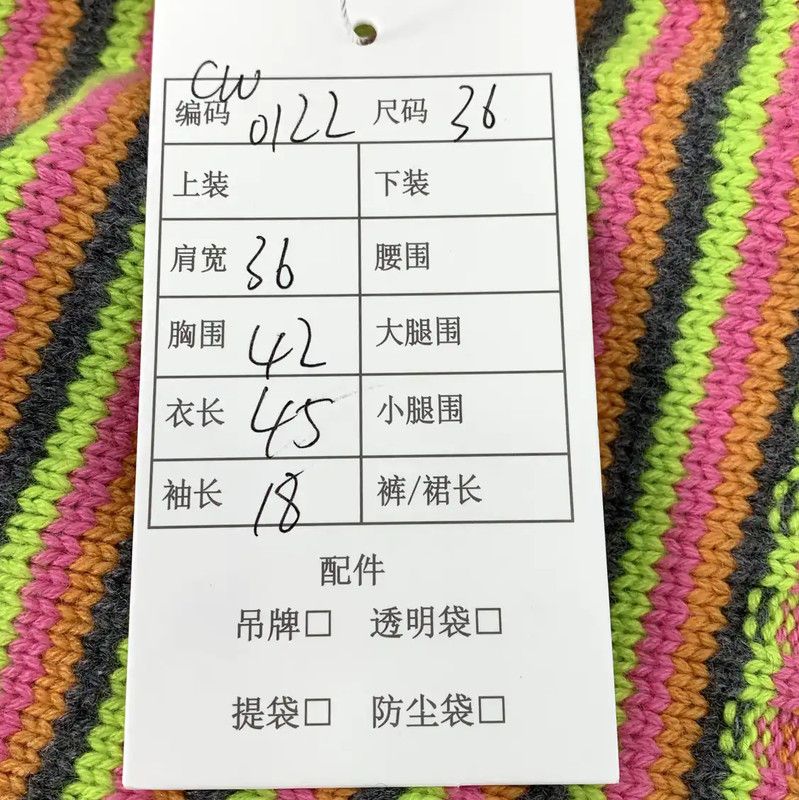 CW
编码 0122 尺码 36
上装 下装
肩宽 36 腰围
胸围 42 大腿围
衣长 45 小腿围
袖长 18 裤/裙长
配件
吊牌□ 透明袋□
提袋□ 防尘袋□